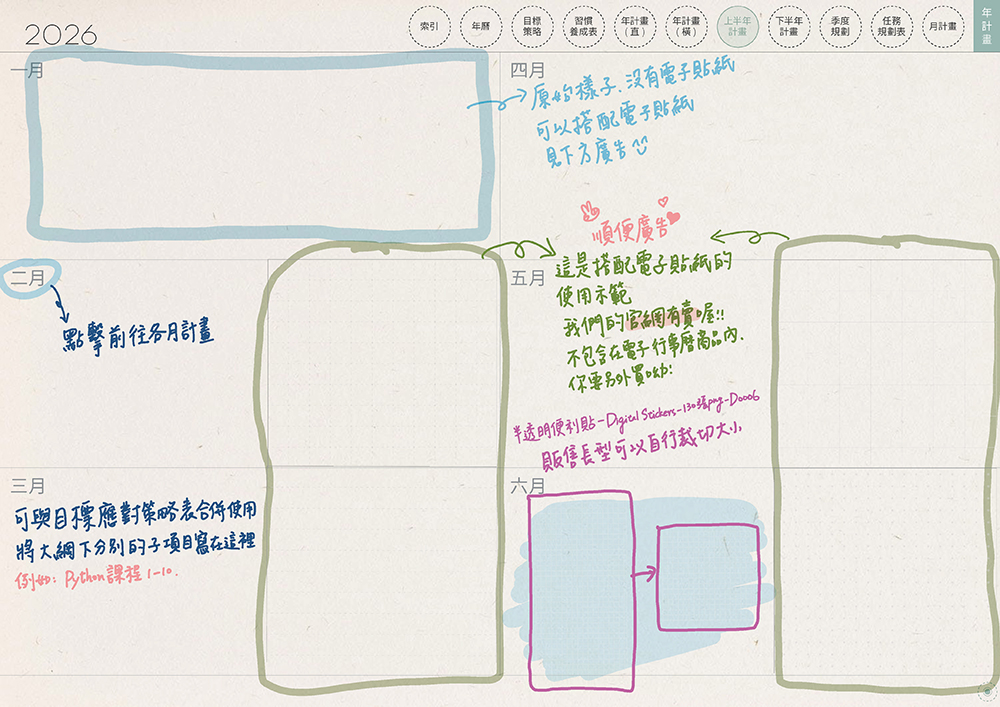 2026
索引
年曆
目標
策略
習慣
養成表
年計畫
(直)
年計畫
(橫)
上半年
計畫
下半年
計畫
季度
規劃
任務
規劃表
月計畫
年計畫
一月
四月
原始樣子、沒有電子貼紙
可以搭配電子貼紙
見下方廣告
順便廣告
二月
點擊前往各月計畫
五月
這是搭配電子貼紙的
使用示範
我們的官網有賣喔!!
不包含在電子行事曆商品內、
你要另外買呦!
半透明便利貼-Digital Stickers-130張png-D0006
販售長型可以自行裁切大小
三月
可與目標應對策略表合併使用
將大綱下分別的子項目寫在這裡
例如: Python課程 1-10.
六月